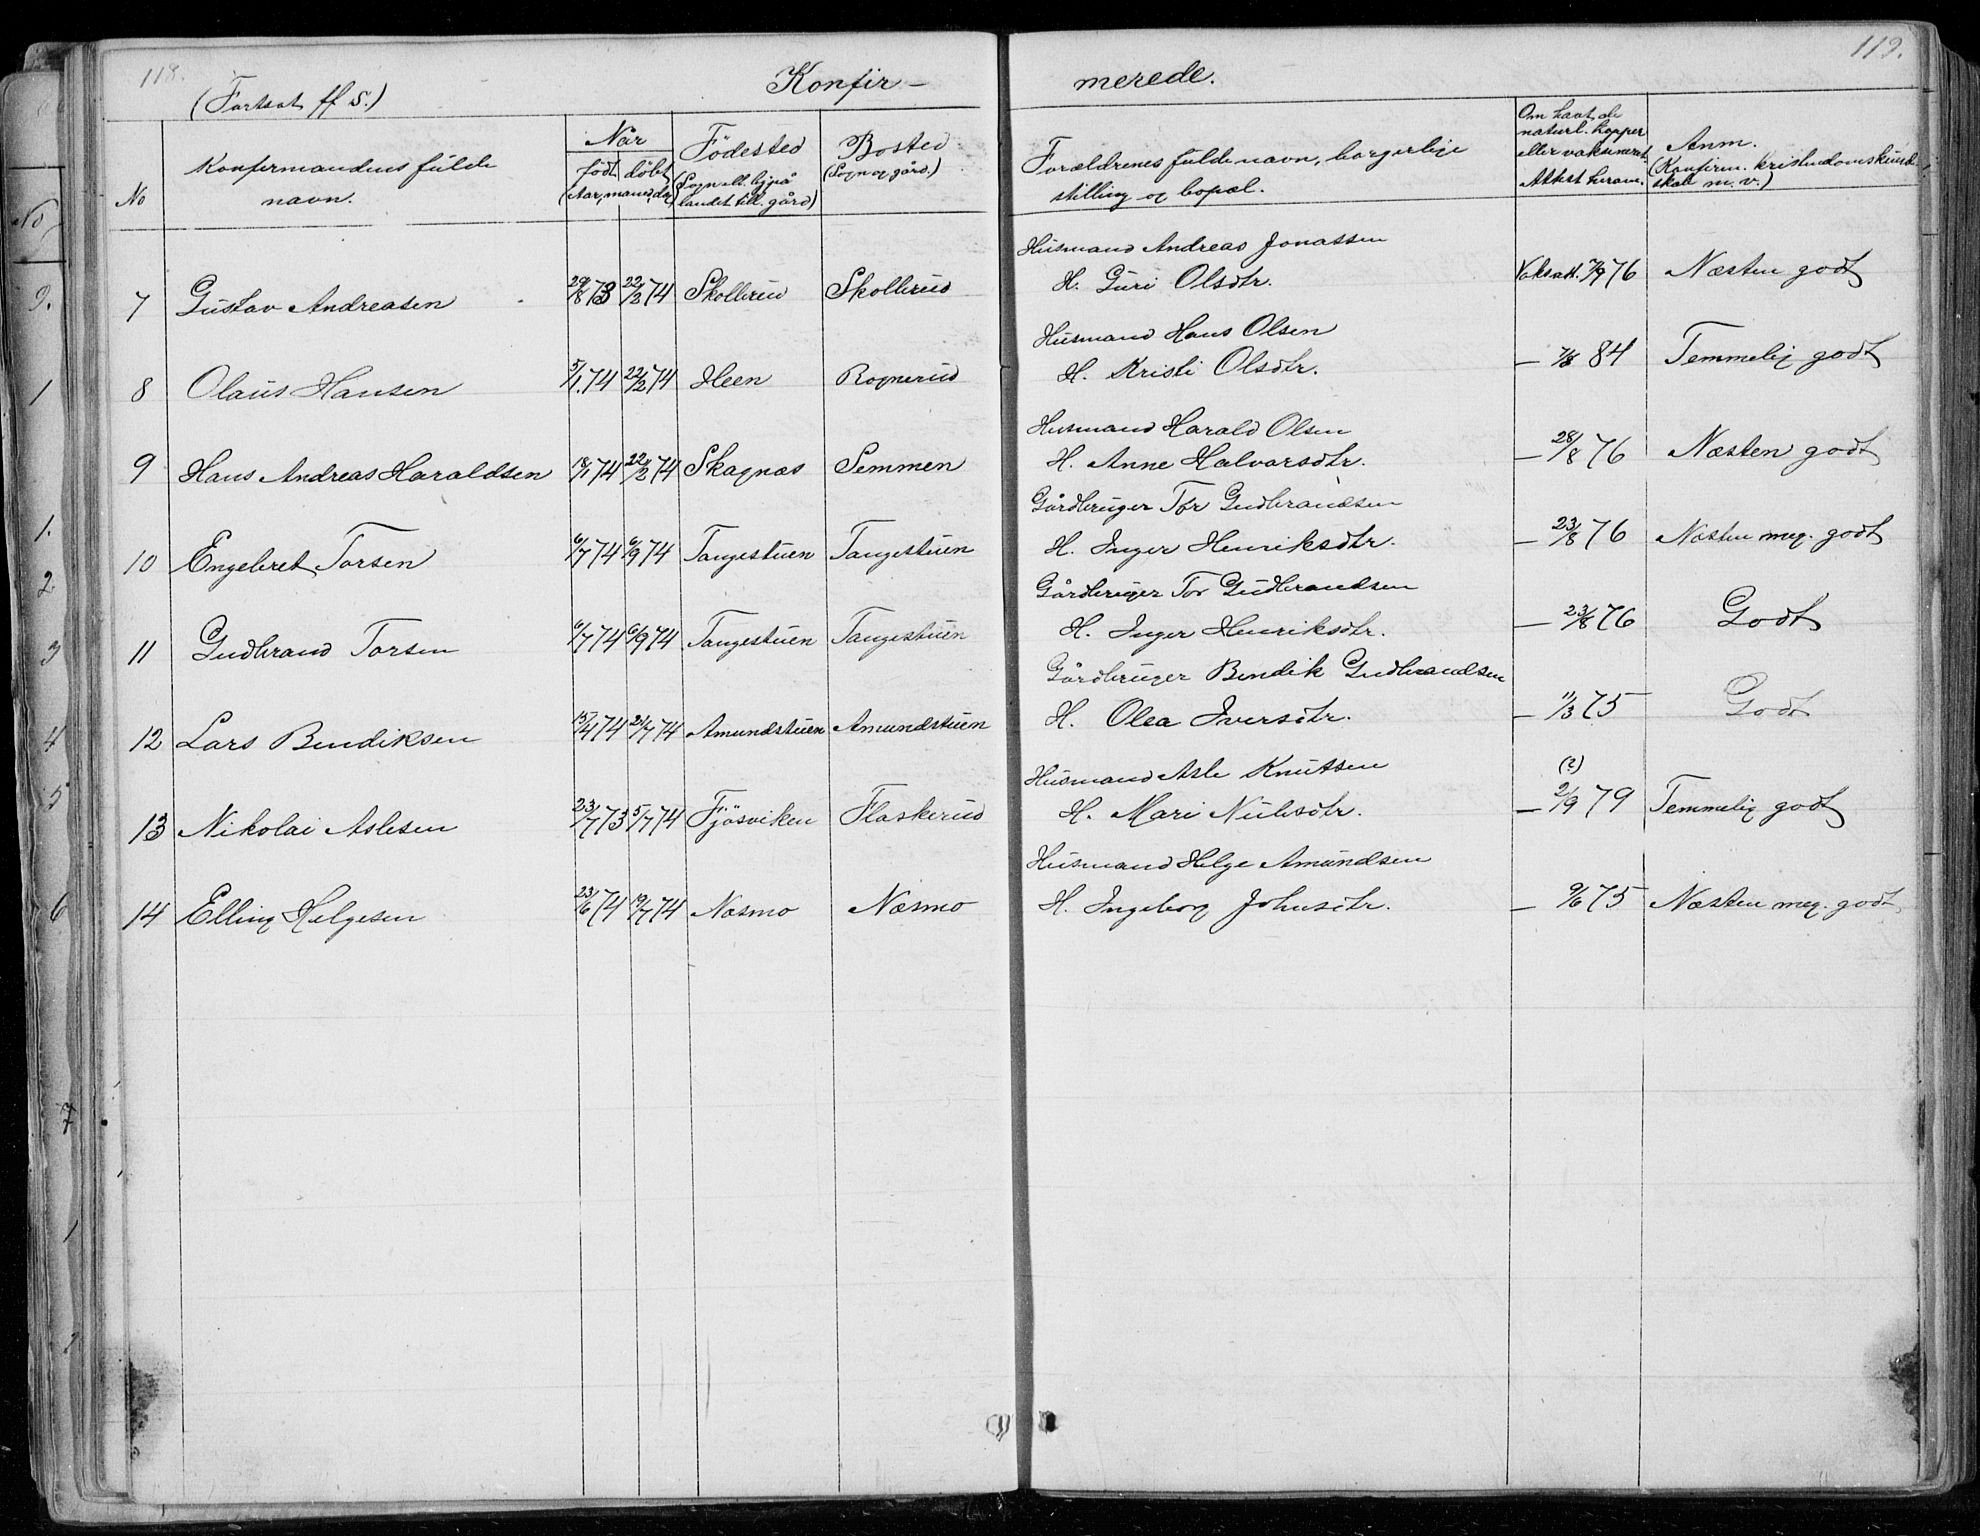 118.
(Fortsat ff S.)
Konfir-
No
Konfirmandens fulde
navn.
Når
født döbt
(Aar, maaned, dag)
Födested
(Sogn ell. by, på
landet till. gård)
Bosted
(Sogn og gård.)
7 Gustav Andreasen 29/8 73 22/2 74 Skollerud Skollerud
8 Olaus Hansen 5/1 74 22/2 74 Heen Rognerud
9 Hans Andreas Haraldsen 18/1 74 22/2 74 Skagnæs Semmen
10 Engebret Torsen 6/7 74 6/9 74 Tangestuen Tangestuen
11 Gudbrand Torsen 6/7 74 6/9 74 Tangestuen Tangestuen
12 Lars Bendiksen 15/4 74 24/7 74 Amundstuen Amundstuen
13 Nikolai Aslesen 23/7 73 5/7 74 Fjösviken Flaskerud
14 Elling Helgesen 23/6 74 19/7 74 Næsmo Næsmo
119.
merede.
Forældrenes fulde navn, borgerlige
stilling og bopæl.
Om havt de
naturl. kopper
eller vakcineret
Attest herom.
Anm.
(Konfirm. kristendomskund-
skab m. v.)
Husmand Andreas Jonassen
H. Guri Olsdtr. Vaksatt. 7/9 76 Næsten godt
Husmand Hans Olsen
H. Kristi Olsdtr. — 7/8 84 Temmelig godt
Husmand Harald Olsen
H. Anne Halvorsdtr. — 28/8 76 Næsten godt
Gårdbruger Tor Gudbrandsen
H. Inger Henriksdtr. — 23/8 76 Næsten meg. godt
Gårdbruger Tor Gudbrandsen
H. Inger Henriksdtr. — 23/8 76 Godt
Gårdbruger Bendik Gudbrandsen
H. Olea Iversdtr. — 11/3 75 Godt
Husmand Asle Knutsen (?)
H. Mari Nilsdtr. — 2/9 79 Temmelig godt
Husmand Helge Amundsen
H. Ingeborg Johnsdtr. — 9/6 75 Næsten meg. godt
No
9.
1
1.
2
3
4
5
6
7
1